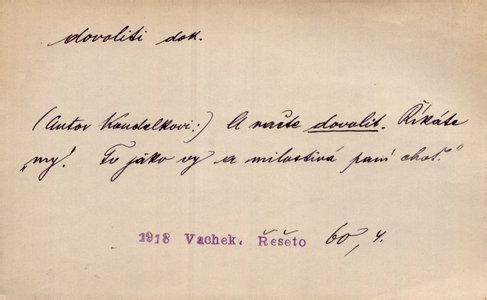 dovoliti dok.
(Autor Koudelkovi:) A račte dovolit. Říkáte
„my“. To jako vy a milostivá paní choť.“
1918 Vachek, Řešeto 60, 4.